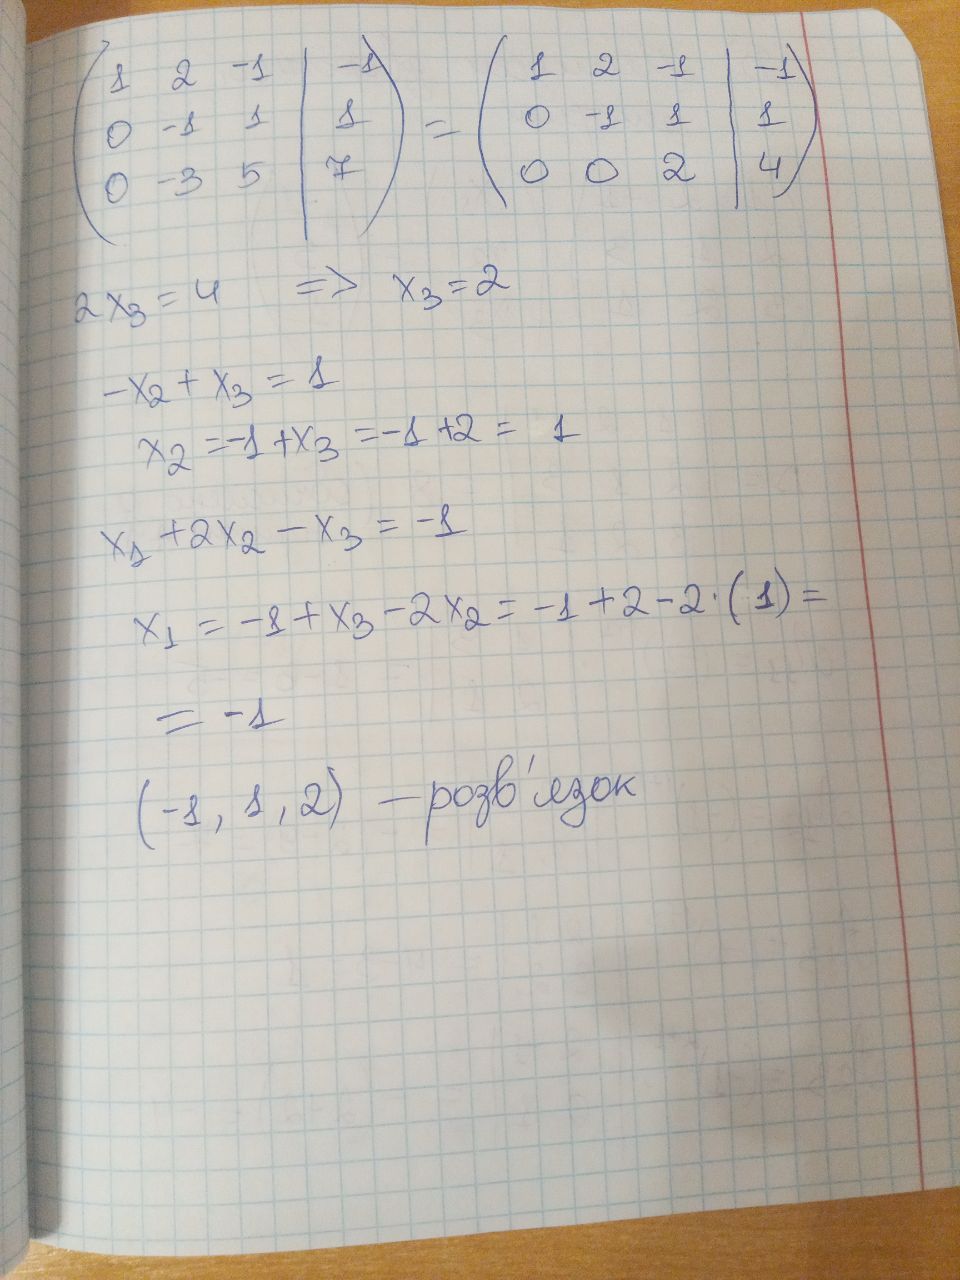 ( 1 2 -1 | -1 ) = ( 1 2 -1 | -1 )
( 0 -1 1 | 1 ) ( 0 -1 1 | 1 )
( 0 -3 5 | 7 ) ( 0 0 2 | 4 )
2x₃ = 4 => x₃ = 2
-x₂ + x₃ = 1
x₂ = -1 + x₃ = -1 + 2 = 1
x₁ + 2x₂ - x₃ = -1
x₁ = -1 + x₃ - 2x₂ = -1 + 2 - 2·(1) =
= -1
(-1, 1, 2) — розв'язок